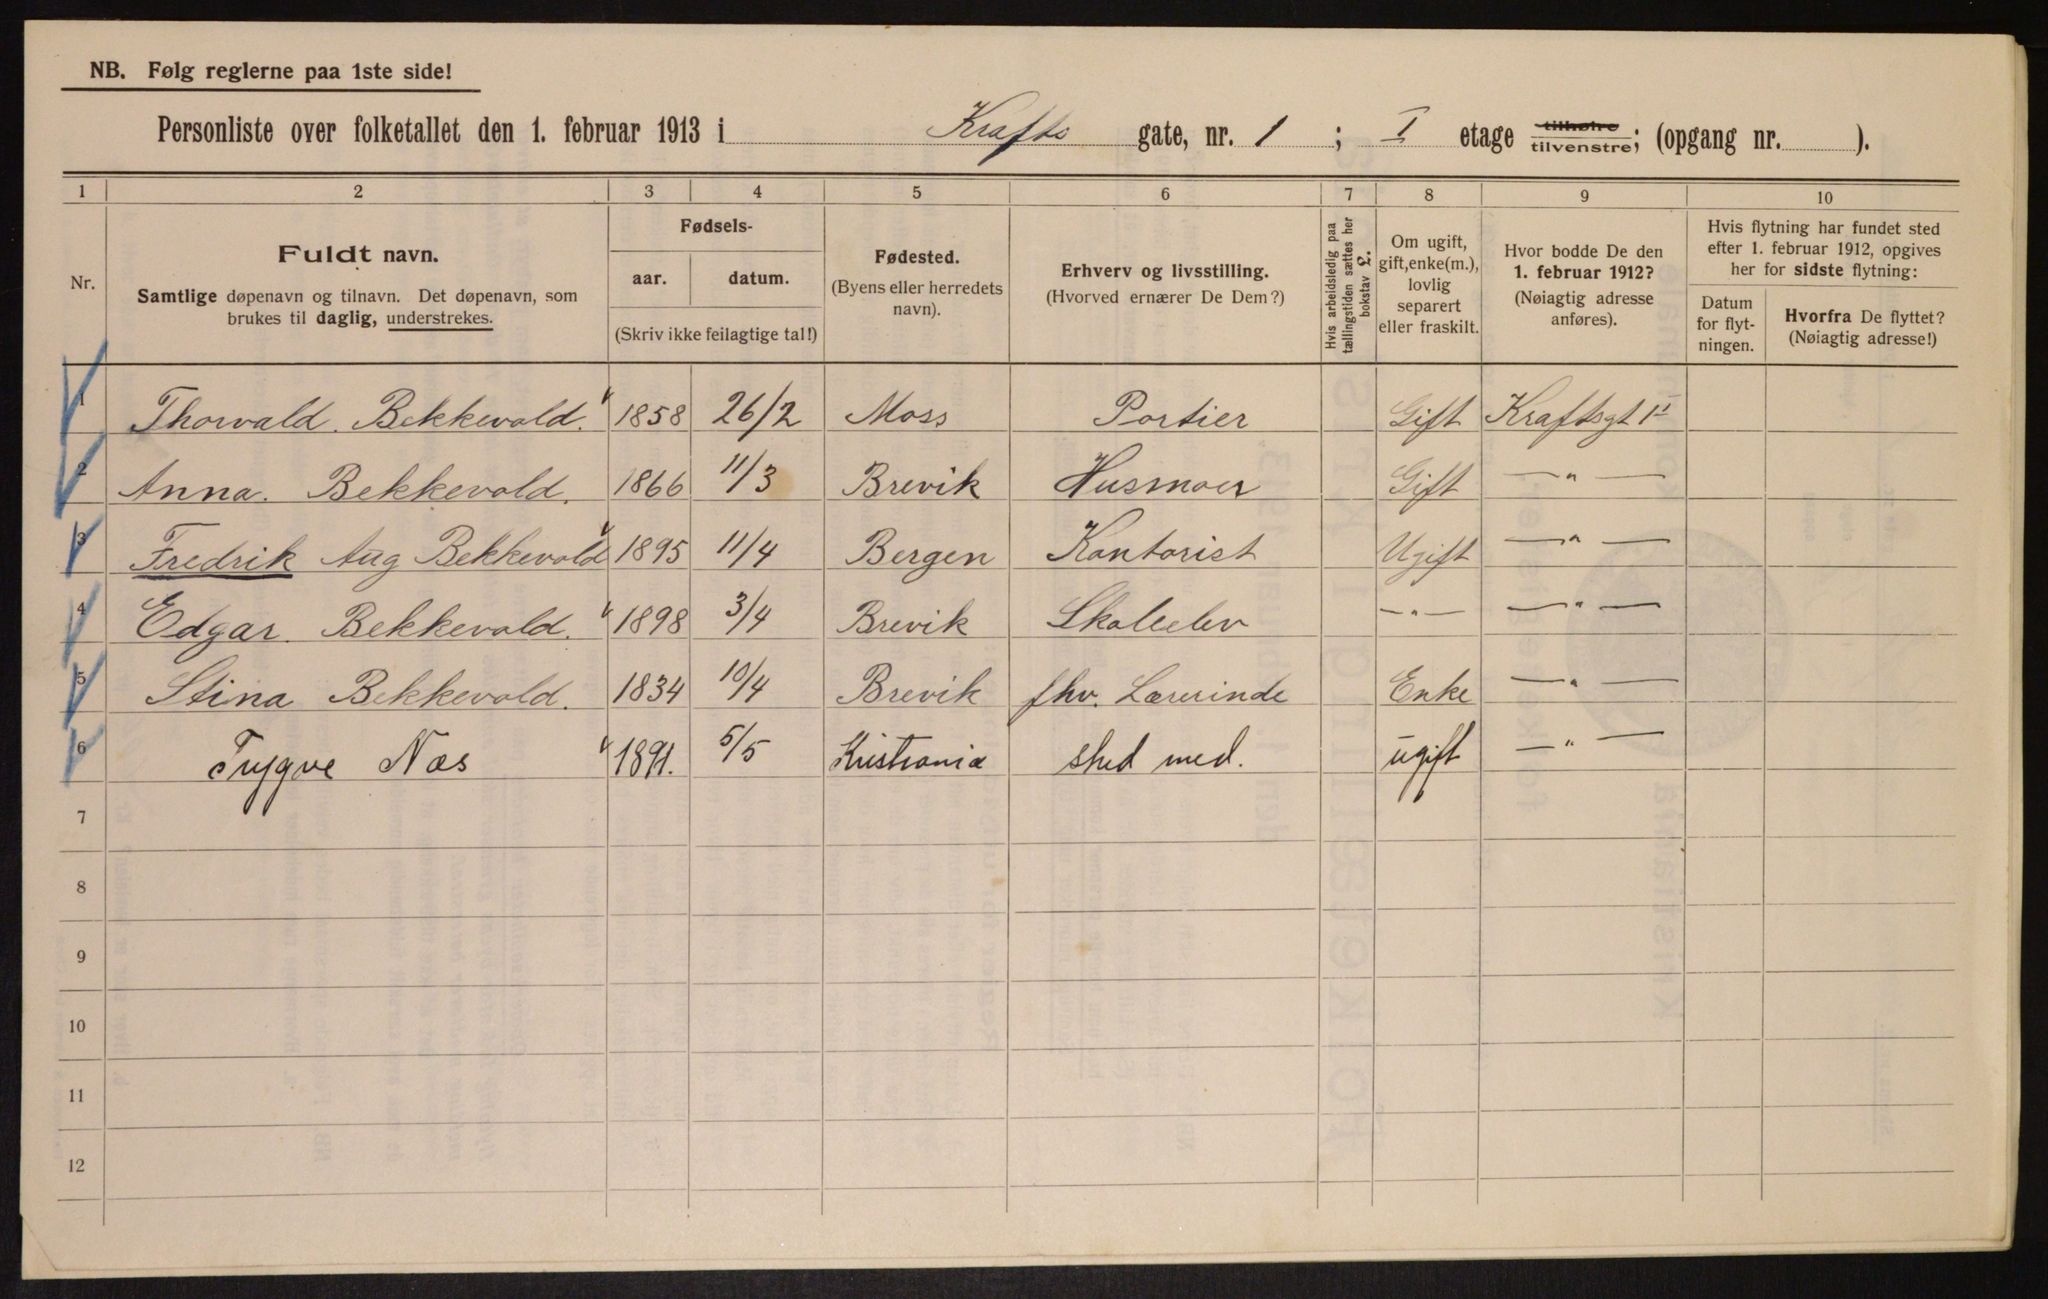 NB. Følg reglerne paa 1ste side!
Personliste over folketallet den 1. februar 1913 i Krafts gate, nr. 1 ; I etage tilhøire tilvenstre; (opgang nr. ).
1 2 3 4 5 6 7 8 9 10
Nr.
Fuldt navn.
Samtlige døpenavn og tilnavn. Det døpenavn, som
brukes til daglig, understrekes.
Fødsels-
aar. datum.
(Skriv ikke feilagtige tal!)
Fødested.
(Byens eller herredets
navn).
Erhverv og livsstilling.
(Hvorved ernærer De Dem?)
Hvis arbeidsledig paa
tællingstiden sættes her
bokstav l.
Om ugift,
gift, enke(m.),
lovlig
separert
eller fraskilt.
Hvor bodde De den
1. februar 1912?
(Nøiagtig adresse
anføres).
Hvis flytning har fundet sted
efter 1. februar 1912, opgives
her for sidste flytning:
Datum
for flyt-
ningen.
Hvorfra De flyttet?
(Nøiagtig adresse!)
1 Thorvald. Bekkevold. 1858 26/2 Moss Portier Gift Kraftsgt 1
2 Anna. Bekkevold. 1866 11/3 Brevik Husmoer Gift — " —
3 Fredrik Aug Bekkevold 1895 11/4 Bergen Kontorist Ugift — " —
4 Edgar. Bekkevold. 1898 3/4 Brevik Skoleelev — " — — " —
5 Stina Bekkevold. 1834 10/4 Brevik fhv. Lærerinde Enke — " —
6 Trygve Næs 1891. 5/5 Kristiania stud med. ugift — " —
7
8
9
10
11
12